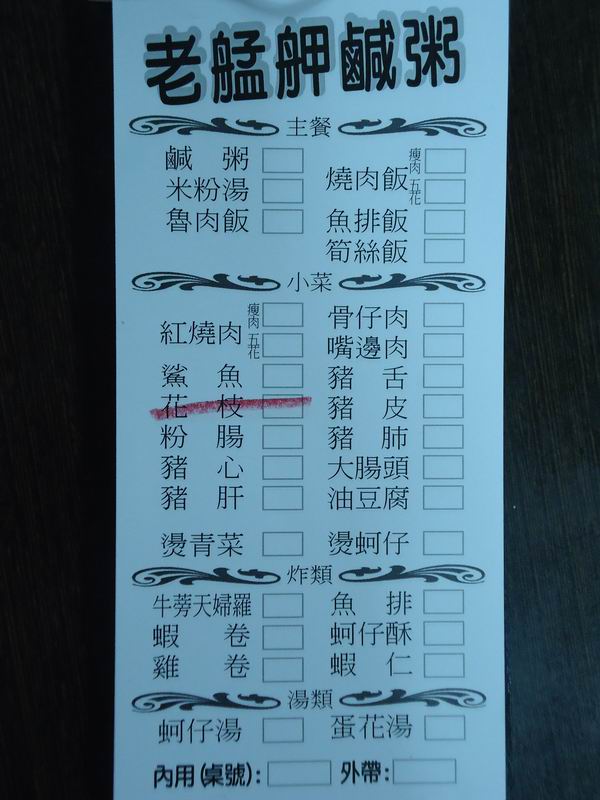 老艋舺鹹粥
主餐
鹹粥
米粉湯
魯肉飯
燒肉飯 瘦肉 五花
魚排飯
筍絲飯
小菜
紅燒肉 瘦肉 五花
鯊魚
花枝
粉腸
豬心
豬肝
燙青菜
骨仔肉
嘴邊肉
豬舌
豬皮
豬肺
大腸頭
油豆腐
燙蚵仔
炸類
牛蒡天婦羅
蝦卷
雞卷
魚排
蚵仔酥
蝦仁
湯類
蚵仔湯
蛋花湯
內用(桌號): 外帶: